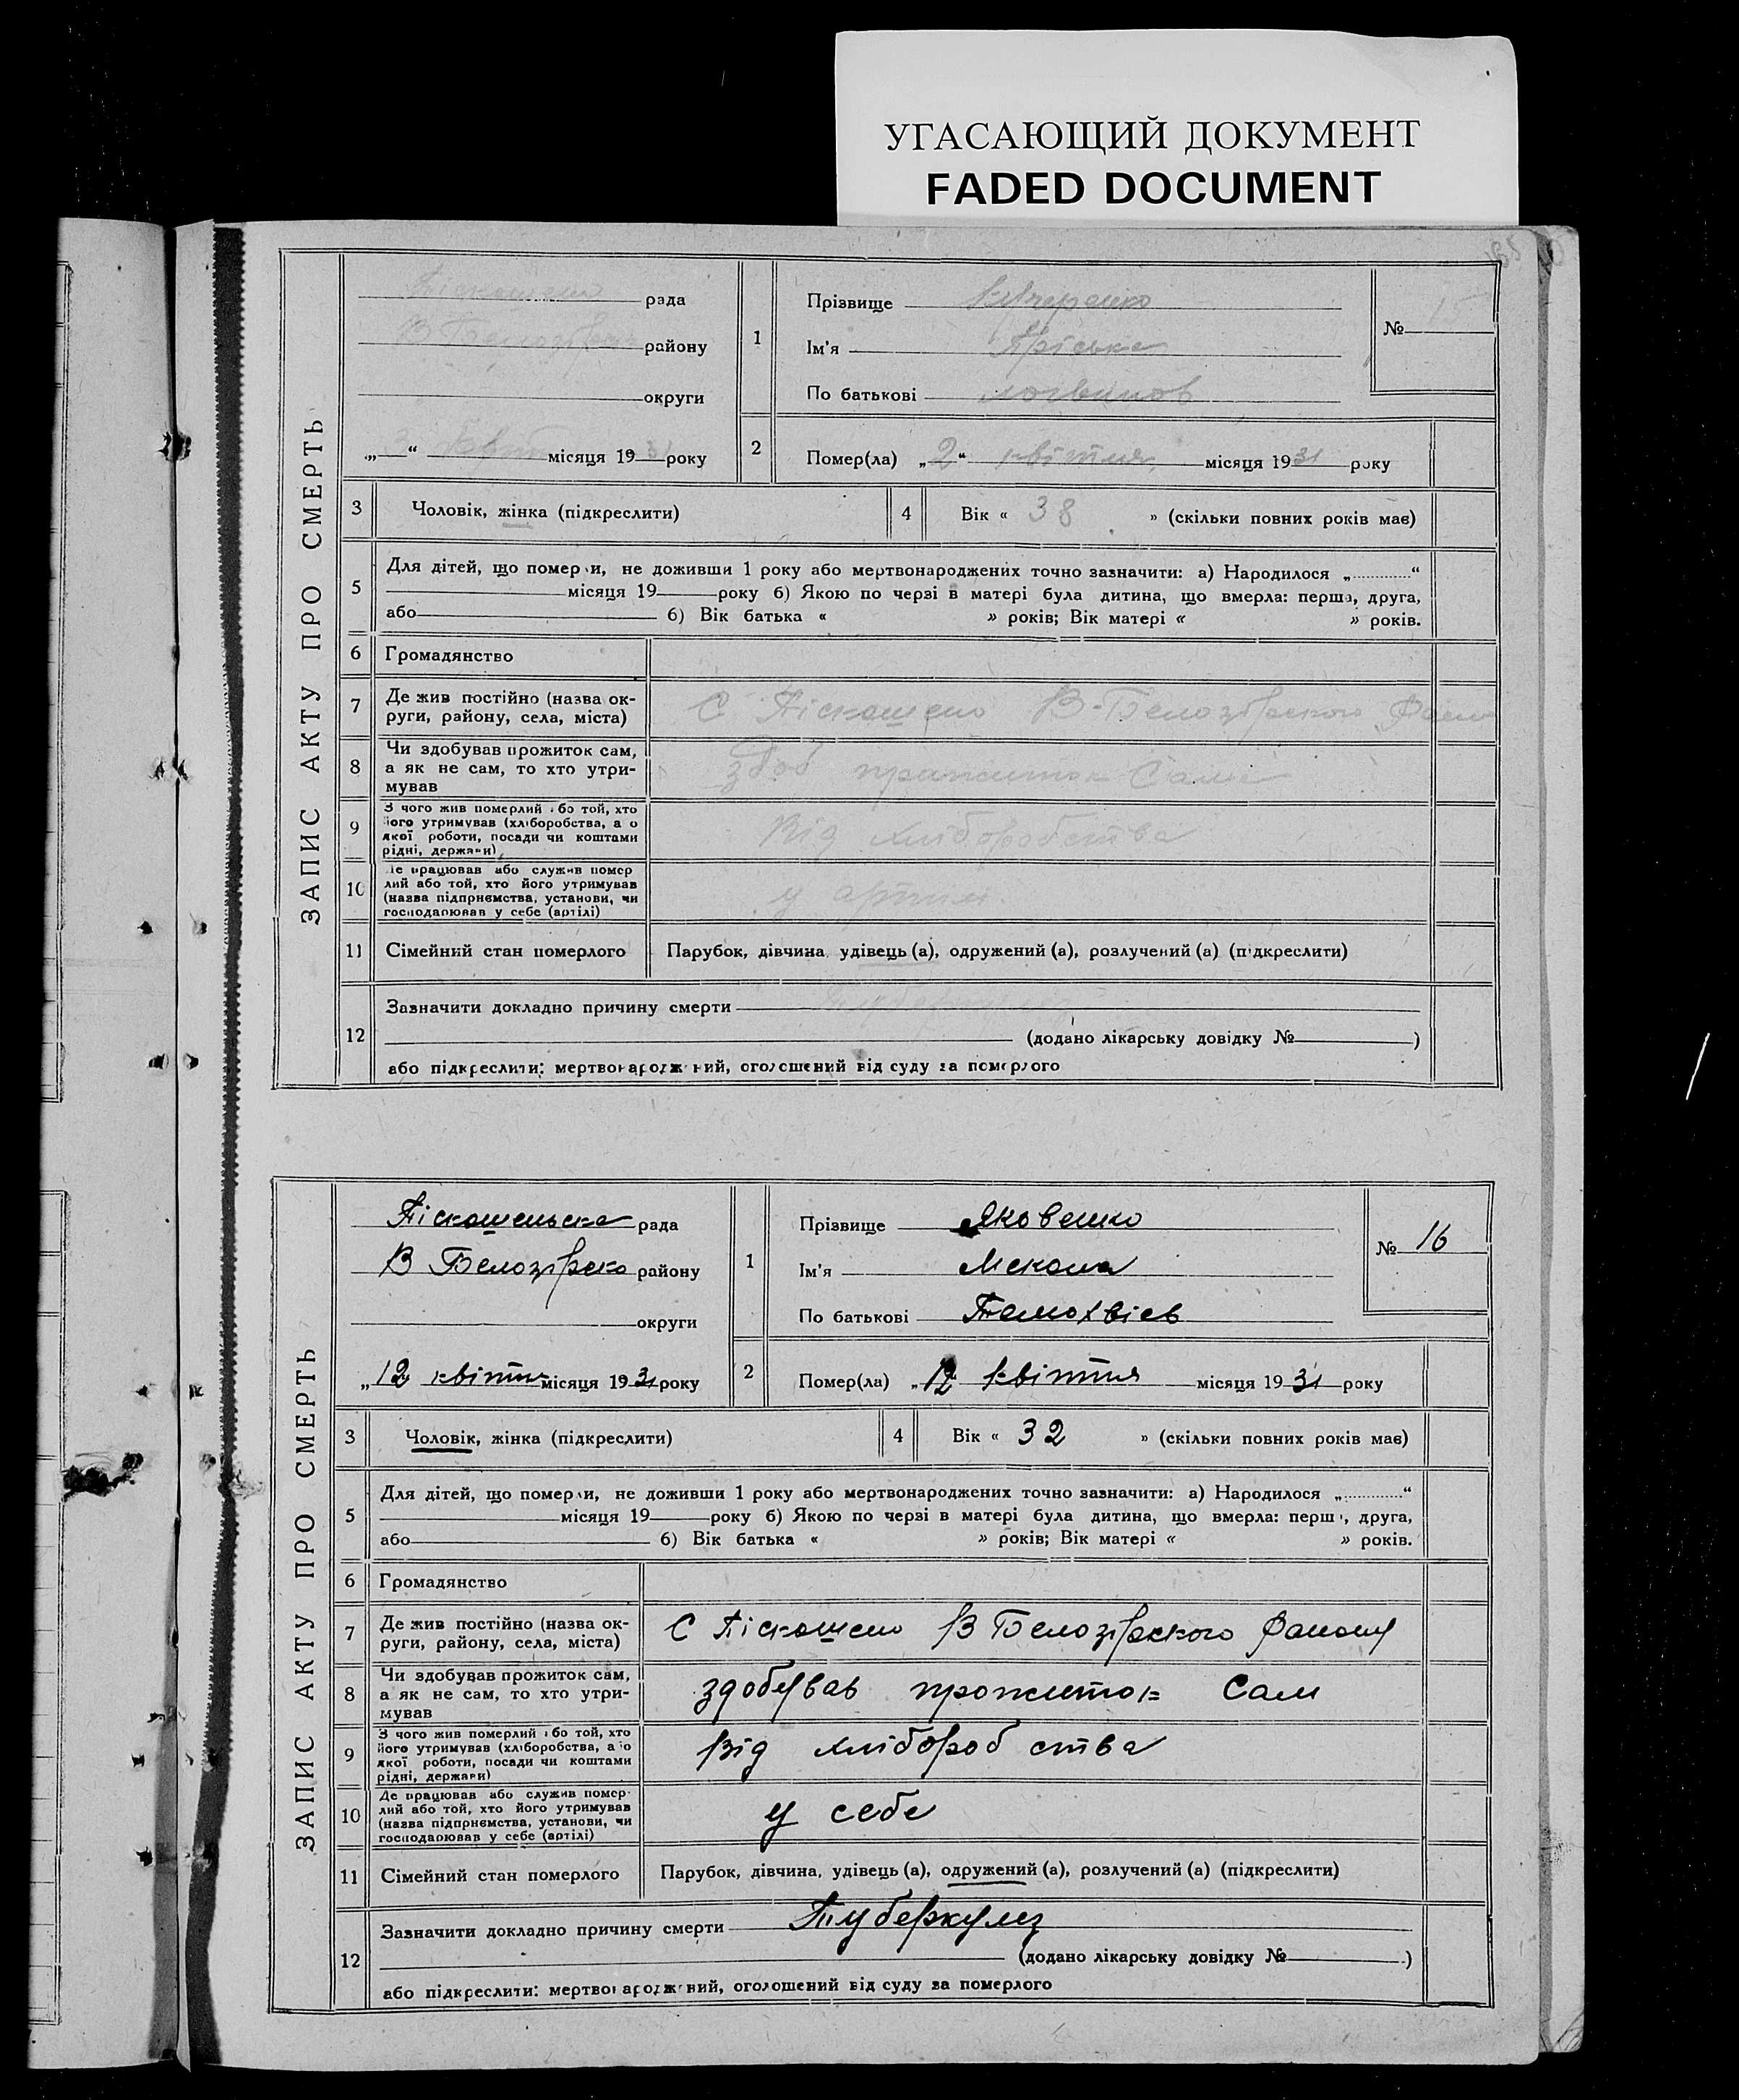 УГАСАЮЩИЙ ДОКУМЕНТ
FADED DOCUMENT
ЗАПИС АКТУ ПРО СМЕРТЬ
рада
В Белозірськ району
округи
„3“ квіт місяця 1931 року
1
Прізвище
Ім'я Пріська
По батькові логвинов
№ 15
2
Помер(ла) „2“ квітня місяця 1931 року
3 Чоловік, жінка (підкреслити)
4 Вік « 38 » (скільки повних років має)
5 Для дітей, що померли, не доживши 1 року або мертвонароджених точно зазначити: а) Народилося „ “
місяця 19 року б) Якою по черзі в матері була дитина, що вмерла: перша, друга,
або б) Вік батька « » років; Вік матері « » років.
6 Громадянство
7 Де жив постійно (назва ок-
руги, району, села, міста)
С Піскошено В-Белозірского Раену
8 Чи здобував прожиток сам,
а як не сам, то хто утри-
мував
здоб прожиток Сама
9 З чого жив померлий або той, хто
його утримував (хліборобства, або
якої роботи, посади чи коштами
рідні, держави)
Від хліборобства
10 Де працював або служив помер
лий або той, хто його утримував
(назва підприємства, установи, чи
господарював у себе (артілі)
у артил.
11 Сімейний стан померлого Парубок, дівчина, удівець (а), одружений (а), розлучений (а) (підкреслити)
12 Зазначити докладно причину смерти
(додано лікарську довідку № )
або підкреслити: мертвонароджений, оголошений від суду за померлого
ЗАПИС АКТУ ПРО СМЕРТЬ
Піскошенська рада
В Белозірско району
округи
„12 квітня місяця 1931 року
1
Прізвище Яковенко
Ім'я Мекола
По батькові
№ 16
2
Помер(ла) „12 квітня місяця 1931 року
3 Чоловік, жінка (підкреслити)
4 Вік « 32 » (скільки повних років має)
5 Для дітей, що померли, не доживши 1 року або мертвонароджених точно зазначити: а) Народилося „ “
місяця 19 року б) Якою по черзі в матері була дитина, що вмерла: перша, друга,
або б) Вік батька « » років; Вік матері « » років.
6 Громадянство
7 Де жив постійно (назва ок-
руги, району, села, міста)
С Піскошено В Белозірского Району
8 Чи здобував прожиток сам,
а як не сам, то хто утри-
мував
здобував прожиток Сам
9 З чого жив померлий або той, хто
його утримував (хліборобства, або
якої роботи, посади чи коштами
рідні, держави)
Від хлібороб ства
10 Де працював або служив помер
лий або той, хто його утримував
(назва підприємства, установи, чи
господарював у себе (артілі)
у себе
11 Сімейний стан померлого Парубок, дівчина, удівець (а), одружений (а), розлучений (а) (підкреслити)
12 Зазначити докладно причину смерти Туберкулез
(додано лікарську довідку № )
або підкреслити: мертвонароджений, оголошений від суду за померлого